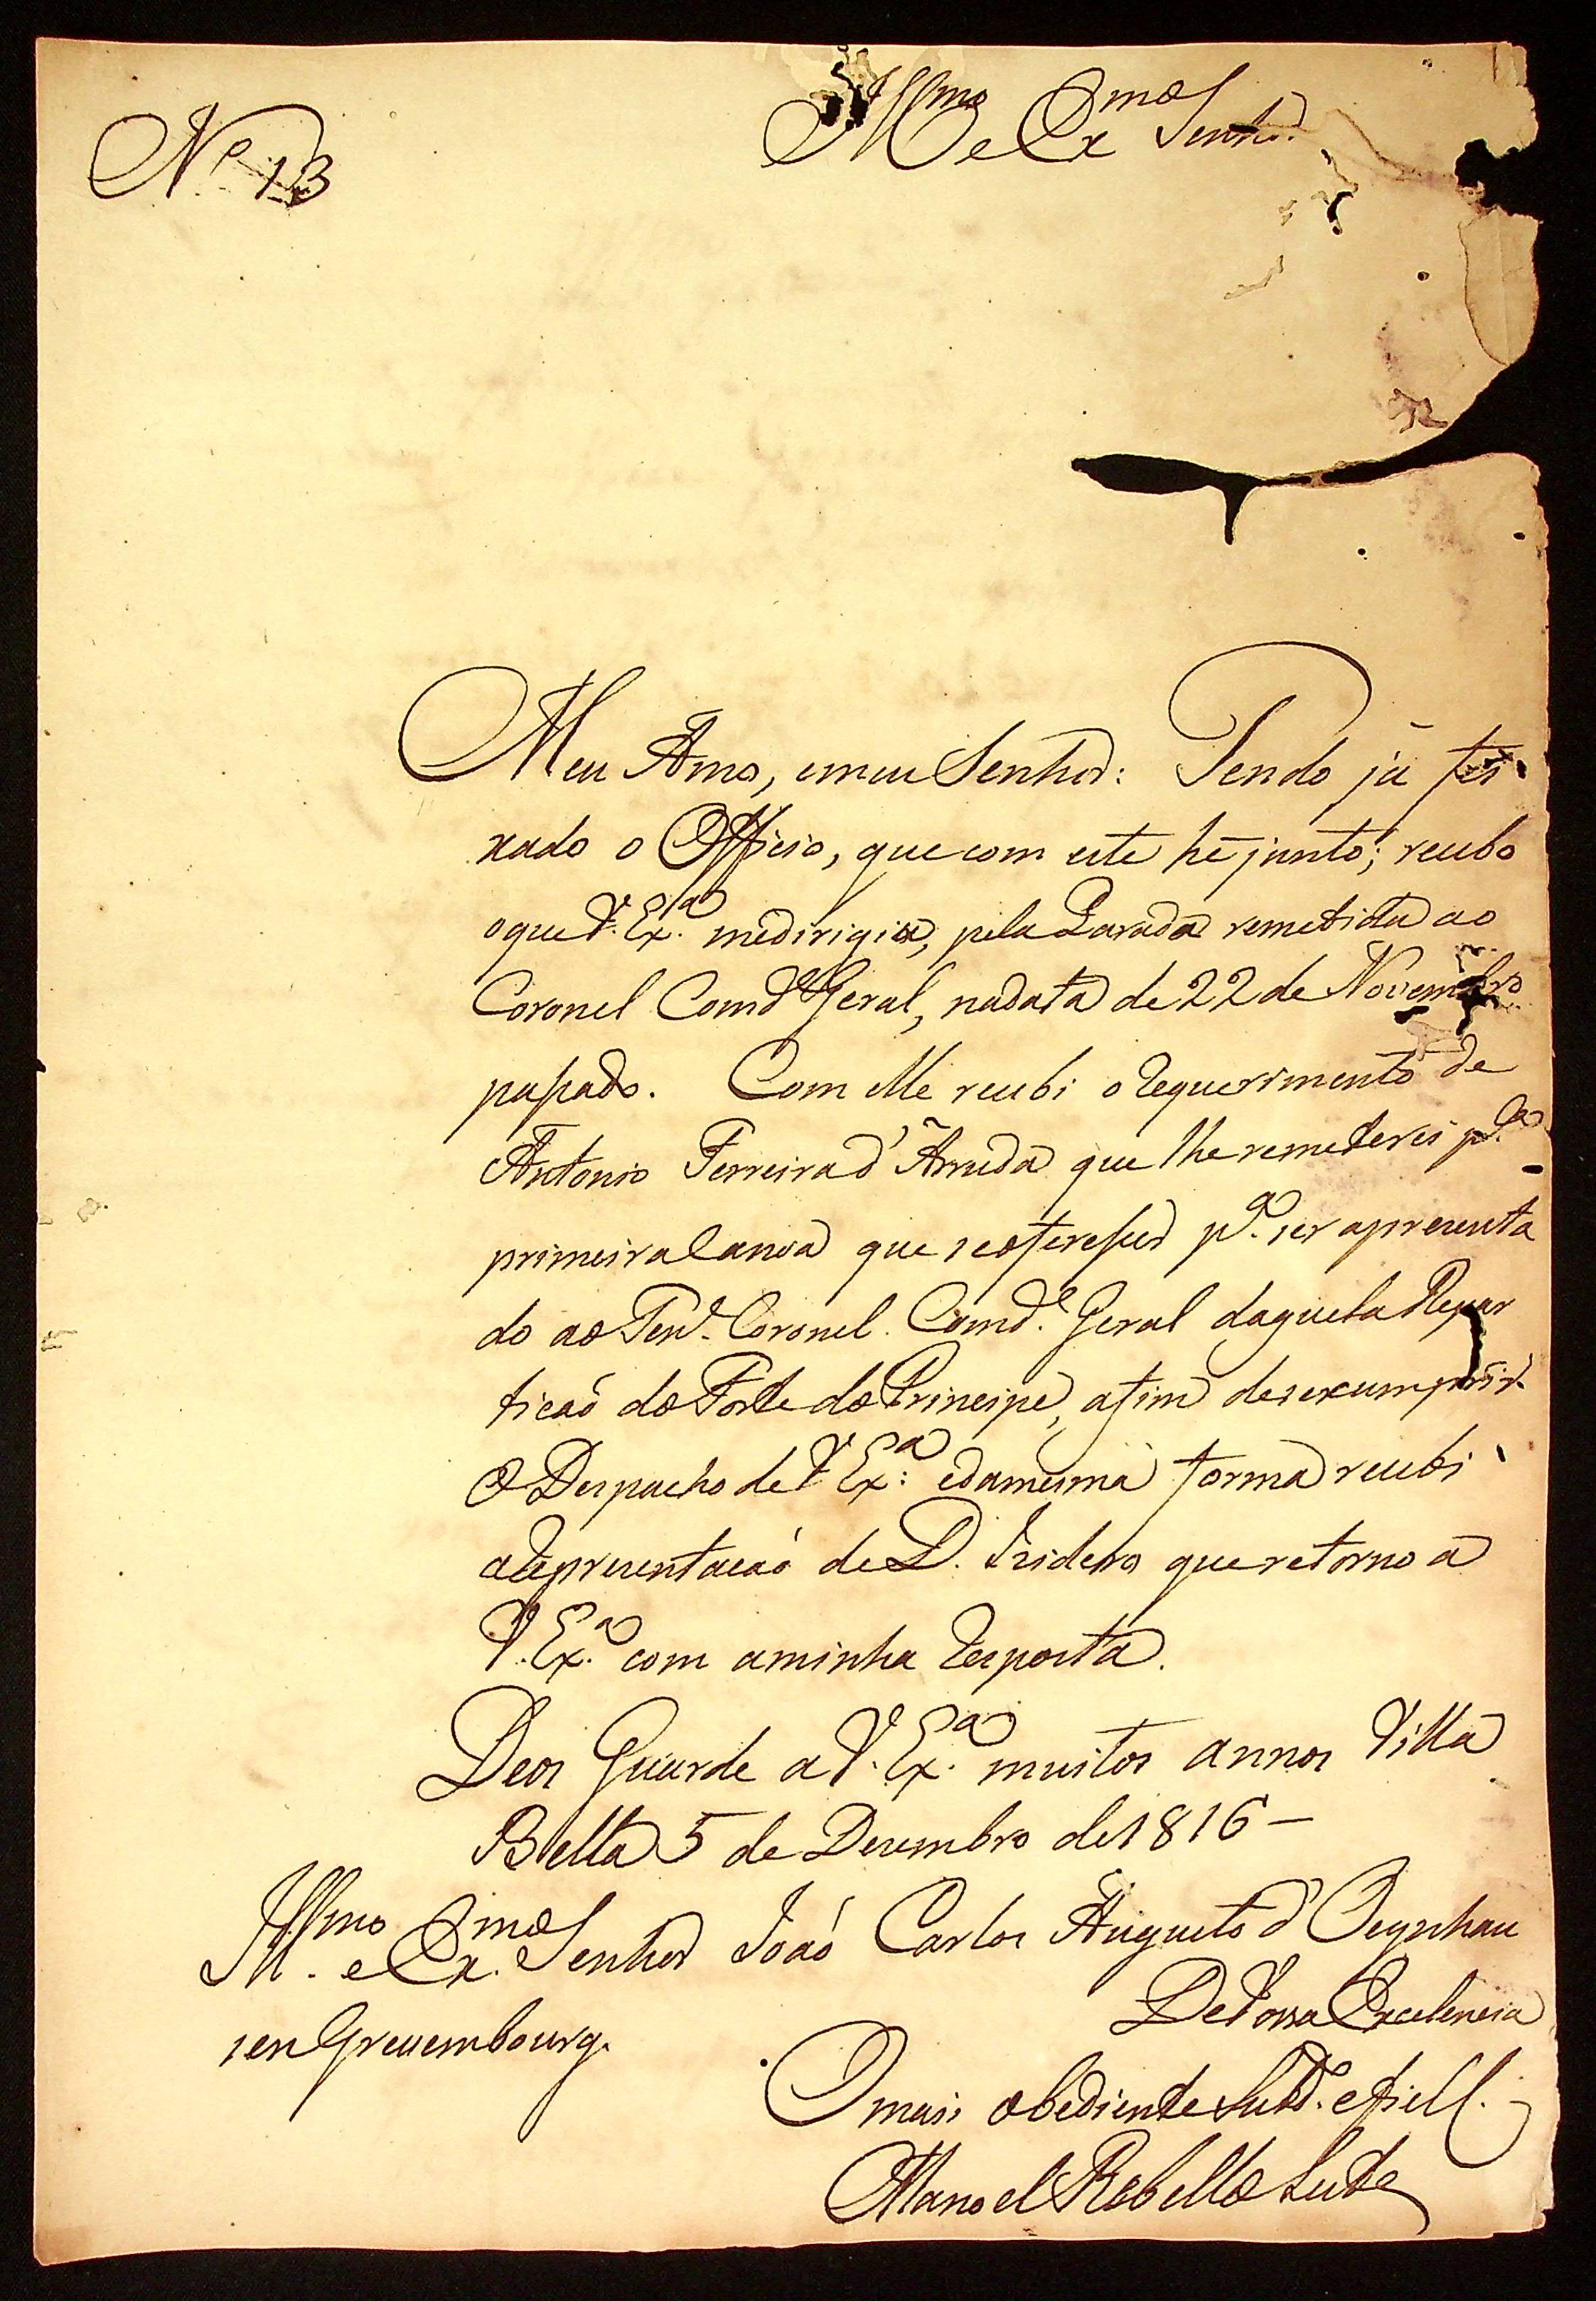 N.º 13
Ill.mo e Ex.mo Senhor
Meu Amo, emeu Senhor: Tendo já fei
xado o Officio, que com este hé junto; recebo
oque V. Ex.ª medirigia, pela Parada remetida ao
Coronel Comd.e Geral, nadata de 22 de Novembro
passado. Com elle recebi o Requerimento de
Antonio Ferreira d'Arruda que lhe remeterei p.la
primeira Canoa que se oferesser p.ª ser apresenta
do ao Ten.e Coronel Comd.e Geral daquela Repar
ticaõ do Forte do Principe, afim de se cumprir
O Despacho de V. Ex.ª edamesma forma recebi
aRepresentacaõ de D. Izidoro que retorno a
V. Ex.ª com aminha Resposta.
Deos Guarde a V. Ex.ª muitos annos Villa
Bella 5 de Dezembro de 1816 —
Ill.mo e Ex.mo Senhor Joaõ Carlos Augusto d'Oeynhau
sen Grevembourg.
De Vossa Excelencia
O mais obediente Subd.º e fiel C.
Manoel Rebello Leite